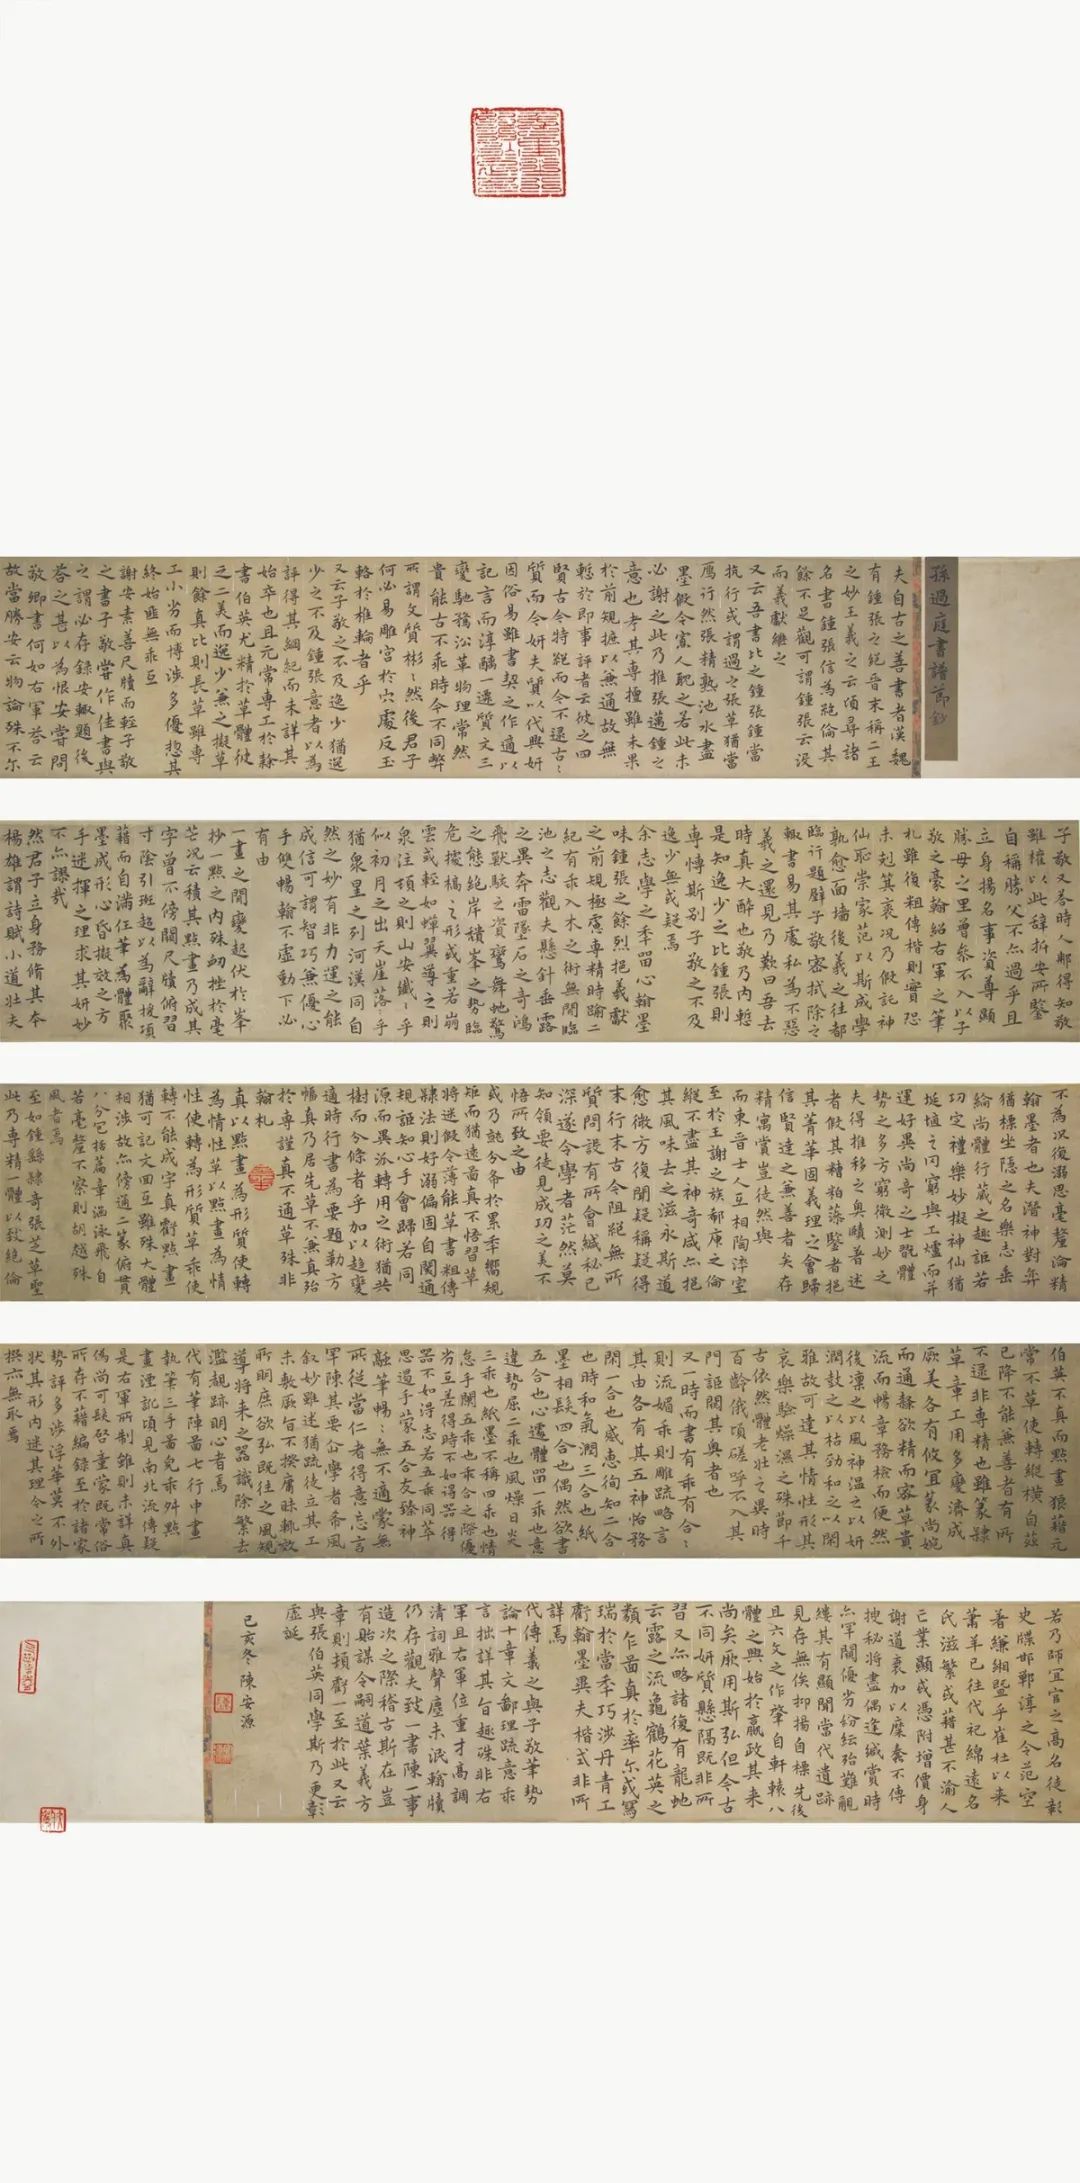 孫過庭書譜節鈔
夫自古之善書者漢魏
有鍾張之絕晉末稱二王
之妙王羲之云頃尋諸
名書鍾張信為絕倫其
餘不足觀可謂鍾張云沒
而羲獻繼之
又云吾書比之鍾張鍾當
抗行或謂過之張草猶當
鴈行然張精熟池水盡
墨假令寡人耽之若此未
必謝之此乃推張邁鍾之
意也考其專擅雖未果
於前規摭以兼通故無
慙於即事評者云彼之四
賢古今特絕而今不逮古〻
質而今妍夫質以代興妍
因俗易雖書契之作適以
記言而淳醨一遷質文三
變馳騖沿革物理常然
貴能古不乖時今不同弊
所謂文質彬〻然後君子
何必易雕宮於穴處反玉
輅於椎輪者乎
又云子敬之不及逸少猶逸
少之不及鍾張意者以為
評得其綱紀而未詳其
始卒也且元常專工於隸
書伯英尤精於草體彼
之二美而逸少兼之擬草
則餘真比則長草雖專
工小劣而博涉多優揔其
終始匪無乖互
謝安素善尺牘而輕子敬
之書子敬嘗作佳書與
之謂必存錄安輙題後
答之甚以為恨安嘗問
敬卿書何如右軍答云
故當勝安云物論殊不尓
子敬又答時人那得知敬
雖權以此辞折安所鑒
自稱勝父不亦過乎且
立身揚名事資尊顯
勝母之里曾參不入以子
敬之豪翰紹右軍之筆
札雖復粗傳楷則實恐
未剋箕裘況乃假託神
仙恥崇家范以斯成學
孰愈面墻後羲之往都
臨行題壁子敬密拭除之
輙書易其處私為不惡
羲之還見乃歎曰吾去
時真大醉也敬乃內慙
是知逸少之比鍾張則
專慱斯別子敬之不及
逸少無或疑焉
余志學之年留心翰墨
味鍾張之餘烈挹羲獻
之前規極慮專精時踰二
紀有乖入木之術無間臨
池之志觀夫懸針垂露
之異奔雷墜石之奇鴻
飛獸駭之資鸞舞虵驚
之態絕岸頹峯之勢臨
危據槁之形或重若崩
雲或輕如蟬翼導之則
泉注頓之則山安纖〻乎
似初月之出天崖落〻乎
猶衆星之列河漢同自
然之妙有非力運之能
成信可謂智巧兼優心
手雙暢翰不虛動下必
有由
一畫之間變起伏於峯
杪一點之內殊衂挫於毫
芒況云積其點畫乃成其
字曾不傍闚尺牘俯習
寸陰引班超以為辭援項
藉而自滿任筆為體聚
墨成形心昏擬效之方
手迷揮之理求其妍妙
不亦謬哉
然君子立身務脩其本
楊雄謂詩賦小道壯夫
不為況復溺思毫釐淪精
翰墨者也夫潛神對弈
猶標坐隱之名樂志垂
綸尚體行藏之趣詎若
功定禮樂妙擬神仙猶
埏埴之罔窮與工爐而并
運好異尚奇之士翫體
勢之多方窮微測妙之
夫得推移之奧賾著述
者假其糟粕藻鑒者挹
其菁華固義理之會歸
信賢達之兼善者矣存
精寓賞豈徒然與
而東晉士人互相陶淬室
至於王謝之族郗庾之倫
縱不盡其神奇咸亦挹
其風味去之滋永斯道
愈微方復聞疑稱疑得
末行末古今阻絕無所
質問設有所會緘秘已
深遂令學者茫然莫
知領要徒見成功之美不
悟所致之由
或乃就分布於累年嚮規
矩而猶遠圖真不悟習草
將迷假令薄能草書粗傳
隸法則好溺偏固自閡通
規詎知心手會歸若同
源而異派轉用之術猶共
樹而分條者乎加以趨變
適時行書為要題勒方
幅真乃居先草不兼真殆
於專謹真不通草殊非
翰札
真以點畫為形質使轉
為情性草以點畫為情
性使轉為形質草乖使
轉不能成字真虧點畫
猶可記文回互雖殊大體
相涉故亦傍通二篆俯貫
八分包括篇章涵泳飛白
若毫釐不察則胡越殊
風者焉
至如鍾繇隸奇張芝草聖
此乃專精一體以致絕倫
伯英不真而點畫狼藉元
常不草使轉縱橫自茲
已降不能兼善者有所
不逮非專精也雖篆隸
草章工用多變濟成
厥美各有攸宜篆尚婉
而通隸欲精而密草貴
流而暢章務檢而便然
後凜之以風神溫之以妍
潤鼓之以枯勁和之以閑
雅故可達其情性形其
哀樂驗燥濕之殊節千
古依然體老壯之異時
百齡俄頃嗟呼不入其
門詎闚其奧者也
又一時而書有乖有合〻
則流媚乖則雕疏略言
其由各有其五神怡務
閑一合也感惠徇知二合
也時和氣潤三合也紙
墨相發四合也偶然欲書
五合也心遽體留一乖也意
違勢屈二乖也風燥日炎
三乖也紙墨不稱四乖也情
怠手闌五乖也乖合之際優
劣互差得時不如得器得
器不如淂志若五乖同萃
思遏手蒙五合交臻神
融筆暢〻無不適蒙無
所從當仁者得意忘言
罕陳其要企學者希風
叙妙雖述猶疏徒立其工
未敷厥旨不揆庸昧輒效
所明庶欲弘既往之風規
導將來之器識除繁去
濫覩跡明心者焉
代有筆陳啚七行中畫
執筆三手啚皃乖舛點
畫湮訛頃見南北流傳疑
是右軍所制雖則未詳真
偽尚可發啓童蒙既常俗
所存不藉編錄至於諸家
勢評多涉浮華莫不外
狀其形內迷其理令之所
撰亦無取焉
若乃師宜官之高名徒彰
史牒邯鄲淳之令范空
著縑緗暨乎崔杜以來
蕭羊已往代祀綿遠名
氏滋繁或藉甚不渝人
亡業顯或憑附增價身
謝道衰加以糜蠹不傳
搜秘將盡偶逢緘賞時
亦罕闚優劣紛紜殆難覼
縷其有顯聞當代遺跡
見存無俟抑揚自標先後
且六文之作肇自軒轅八
體之興始於嬴政其來
尚矣厥用斯弘但今古
不同妍質懸隔既非所
習又亦略諸復有龍虵
雲露之流龜鶴花英之
類乍啚真於率尓或寫
瑞於當年巧涉丹青工
虧翰墨異夫楷式非所
詳焉
代傳羲之與子敬筆勢
論十章文鄙理疏意乖
言拙詳其旨趣殊非右
軍且右軍位重才高調
清詞雅聲塵未泯翰牘
仍存觀夫致一書陳一事
造次之際稽古斯在豈
有貽謀令嗣道葉義方
章則頓虧一至於此又云
與張伯英同學斯乃更彰
虛誕
己亥冬陳安源